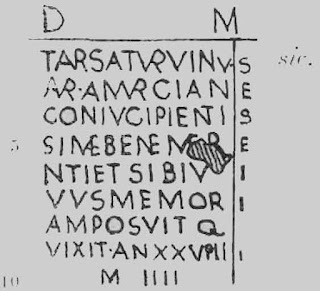 D M
TARSATVRVINV·S sic.
AR·AMRCIAN E
CONIVCIPIENTI S
5 SIMÆBENEMER E
NTIETSIBIV I
VVSMEMOR I
AMPOSVIT Q
VIXIT·ANXXVIIII I
10 M IIII